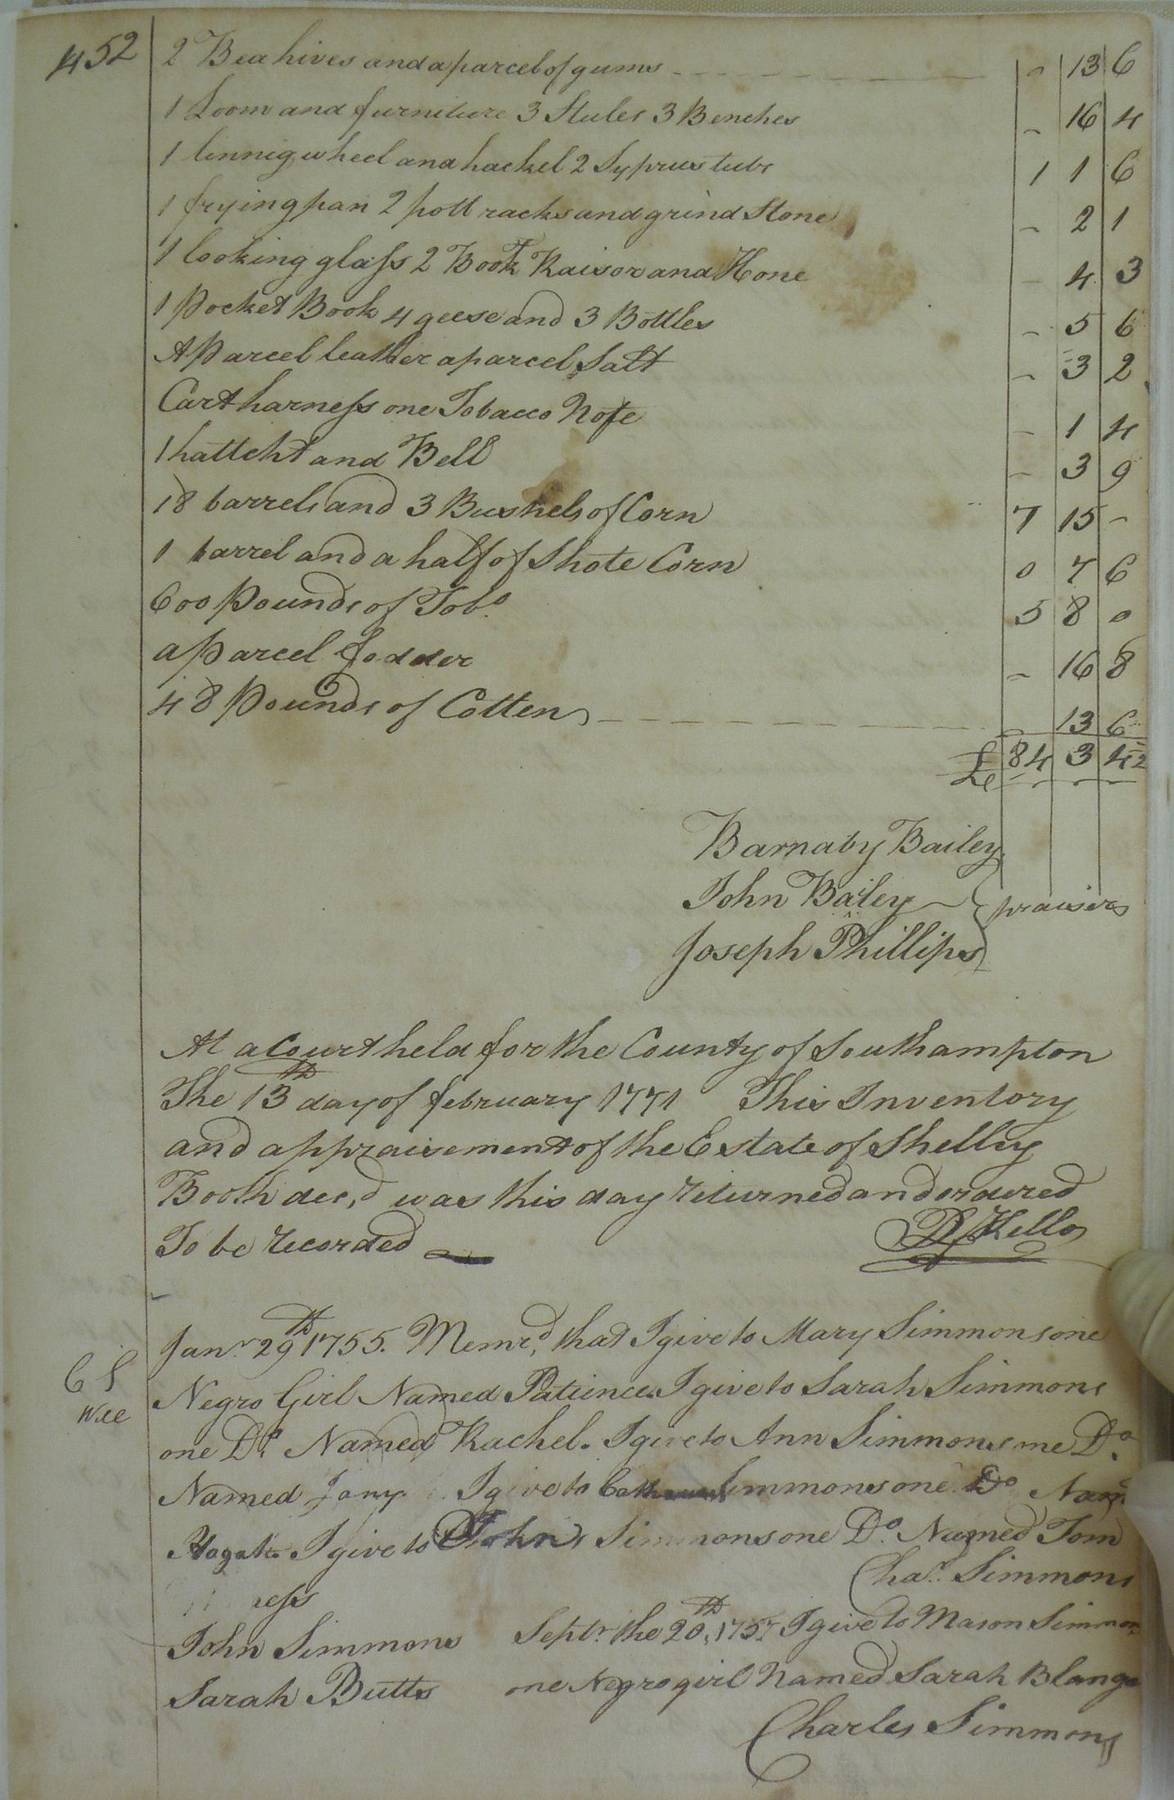 452
2 Bea hives and a parcel of gums - 0 13 6
1 Loom and furniture 3 Stules 3 Benches - 16 4
1 linnig wheel and hackel 2 Syprus tubs 1 1 6
1 frying pan 2 pott racks and grind Stone - 2 1
1 looking glass 2 Book Raisor and Hone - 4 3
1 Pocket Book 4 geese and 3 Bottles - 5 6
A Parcel leather a parcel Salt - 3 2
Cart harness one Tobacco Nose - 1 4
1 hattcht and Bell - 3 9
18 barrels and 3 Bushels of Corn 7 15 -
1 barrel and a half of Shote Corn 0 7 6
600 Pounds of Tobo. 5 8 0
a Parcel fodder - 16 8
48 Pounds of Cotten - 13 6
£ 84 3 4 2
Barnaby Bailey
John Bailey praisers
Joseph Phillips
At a Court held for the County of Southampton
The 13th day of february 1771 This Inventory
and appraisement of the Estate of Shelley
Booth decd was this day returned and ordered
To be recorded
R Kello
Janr 29th 1755. Memrd, that I give to Mary Simmons one
C S
Will
Negro Girl Named Patience. I give to Sarah Simmons
one Do Named Rachel. I give to Ann Simmons one Do
Named Jany I give to Simmons one Do Named
I give to John Simmons one Do. Named Tom
Chas. Simmons
ness
John Simmons Septr the 20th, 1757 I give to Mason Simmons
Sarah Butts one Negro girl Named Sarah Blango
Charles Simmons